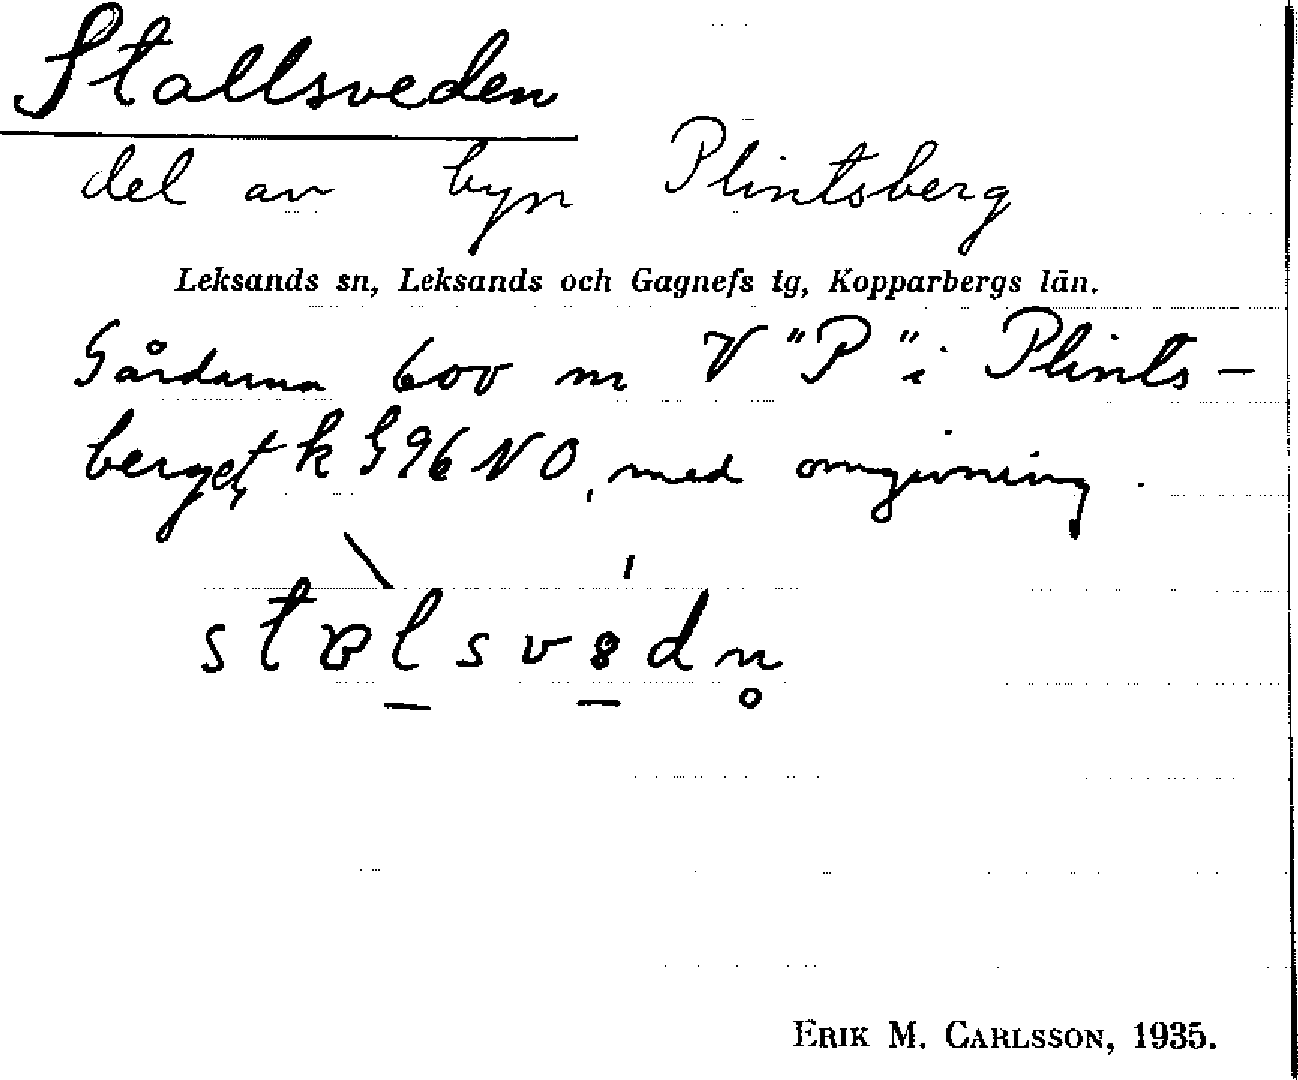 Stallsveden
del av byn Plintsberg
Leksands sn, Leksands och Gagnefs tg, Kopparbergs län.
Gårdarna 600 m V "P" i Plints-
berget, k G 96 NO, med omgivning.
ERIK M. CARLSSON, 1935.